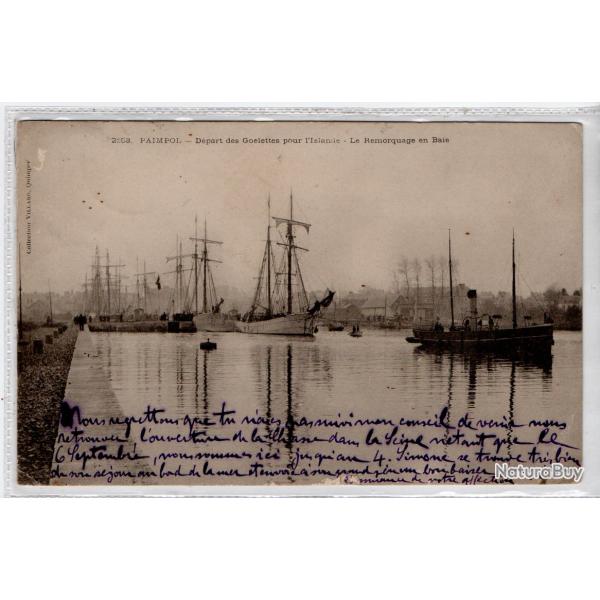 2263. PAIMPOL — Départ des Goelettes pour l'Islande - Le Remorquage en Baie
Collection VILLARD, Quimper
Nous regrettons que tu n'aies pas suivi mon conseil de venir nous
retrouver, l'ouverture de la chasse dans la Seine n'étant que le
6 Septembre, nous sommes ici jusqu'au 4. Simone se trouve très bien
de son séjour au bord de la mer et envoie à son grand un bon baiser
de votre affection
NaturaBuy